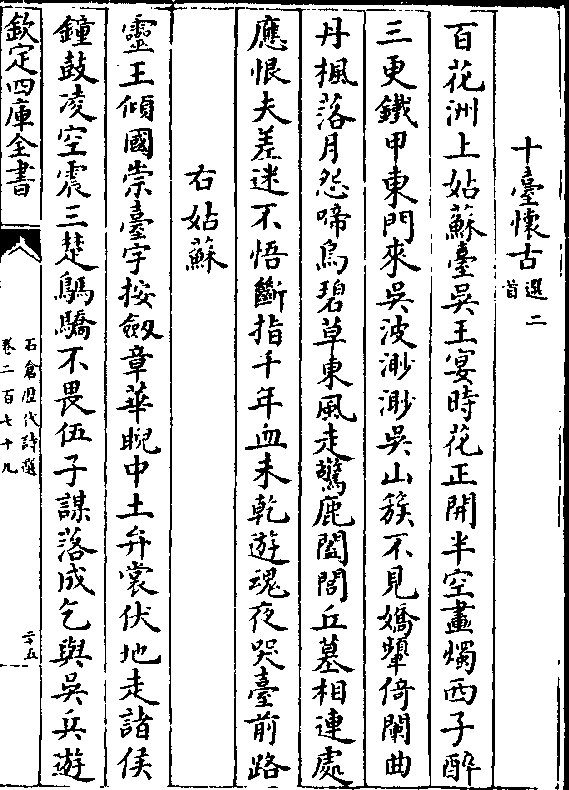 十臺懷古選二首
百花洲上姑蘇臺吳王宴時花正開半空畫燭西子醉
三更鐵甲東門來吳波渺渺吳山簇不見嬌顰倚闌曲
丹楓落月怨啼烏碧草東風走驚鹿闔閭丘墓相連處
應恨夫差迷不悟斷指千年血未乾遊魂夜哭臺前路
右姑蘇
靈王傾國崇臺宇按劒章華睨中土弁裳伏地走諸侯
鐘鼓凌空震三楚鵰驕不畏伍子謀落成乞與吳兵遊
欽定四庫全書
石倉歷代詩選
卷二百七十九
二十五